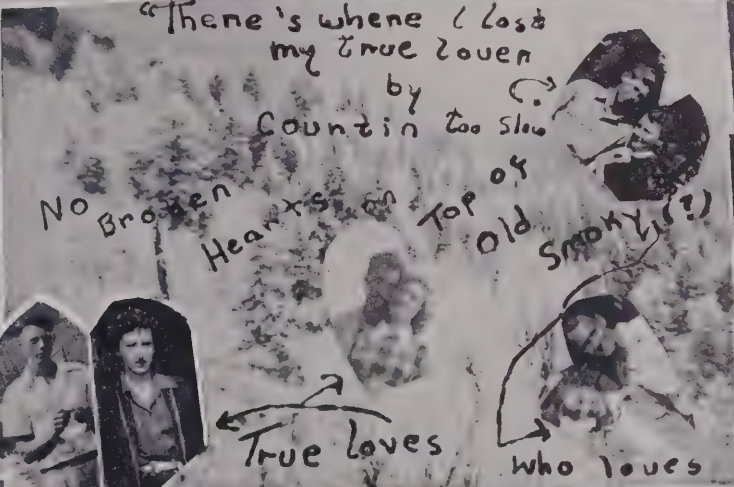 "There's where I lost
my true lover
by
Countin too slow
No Broken Hearts on Top of Old Smoky, (?)
True loves
who loves